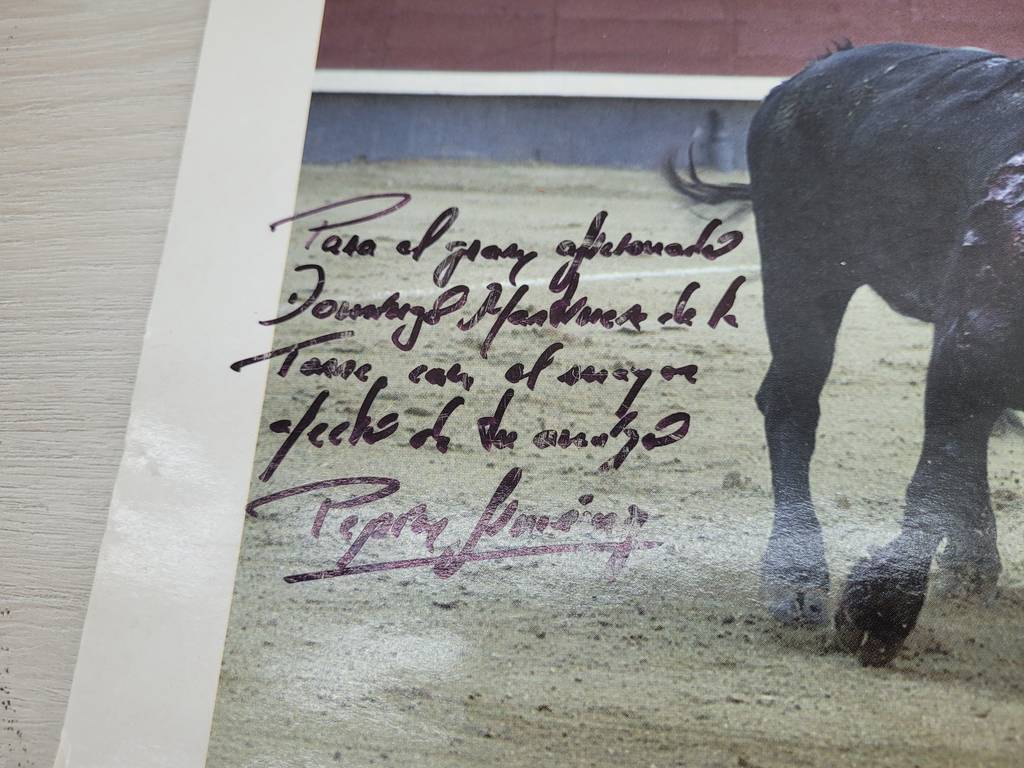 Para el gran aficionado
Domingo de la
Torre, con el mayor
afecto de su amigo
Pepín Jiménez